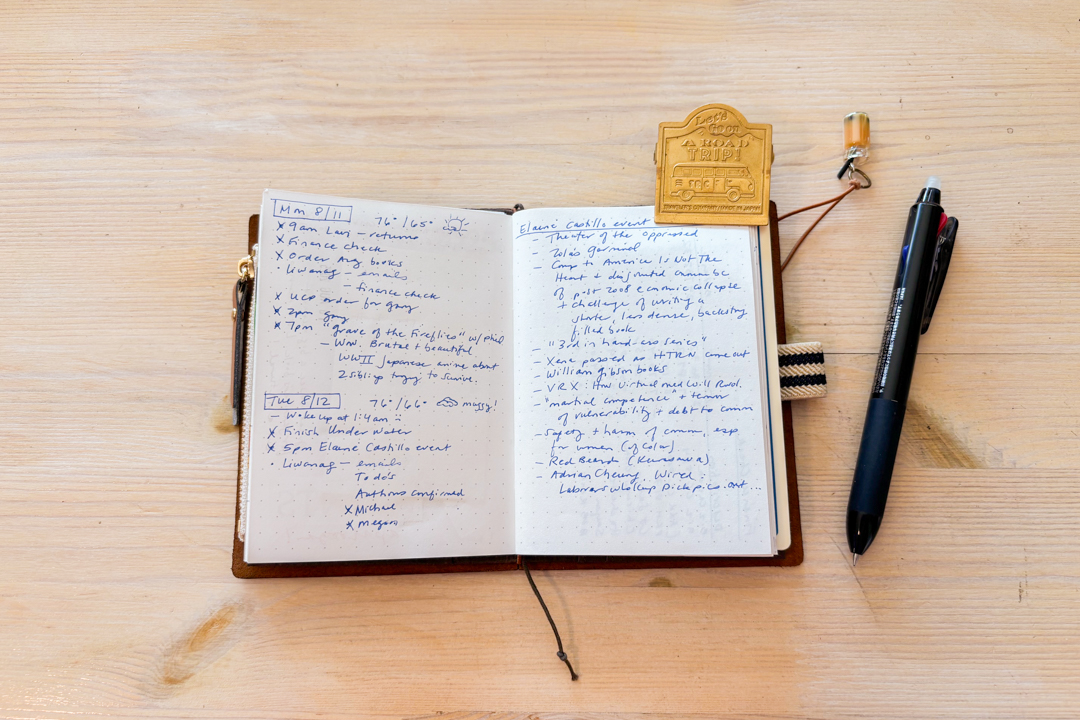 Mon 8/11
76° / 65°
x 9am Lauj – returns
x Finance check
x Order Aug books
• Liwanag – emails
– finance check
x UCP order for gary
x 2pm gary
x 7pm "Grave of the Fireflies" w/ phil
– Wow. Brutal + beautiful
WWII Japanese anime about
2 siblings trying to survive.
Tue 8/12
76° / 66°
muggy!
– Woke up at 1:4am
x Finish Under Water
x 5pm Elaine Castillo event
• Liwanag – emails
To do's
Authors confirmed
x Michael
x Megan
Let's
Go on
A ROAD
TRIP!
TRAVELER'S COMPANY MADE IN JAPAN
Elaine Castillo event
– Theater of the oppressed
– Zola's Germinal
– Comp to America Is Not The
Heart + disjointed
of post 2008 economic collapse
+ challenge of writing a
shorter, less dense, backstory
filled book
– "3rd in hand-ess series"
– Xena passed as HTRN come out
– William Gibson books
– VRX: How Virtual med Will Revol.
– "martial competence" + tenor
of vulnerability + debt to comm
– Safety + harm of comm, esp
for women (of color)
– Red Beard (Kurosawa)
– Adrian Cheung, Wired:
Laborers who